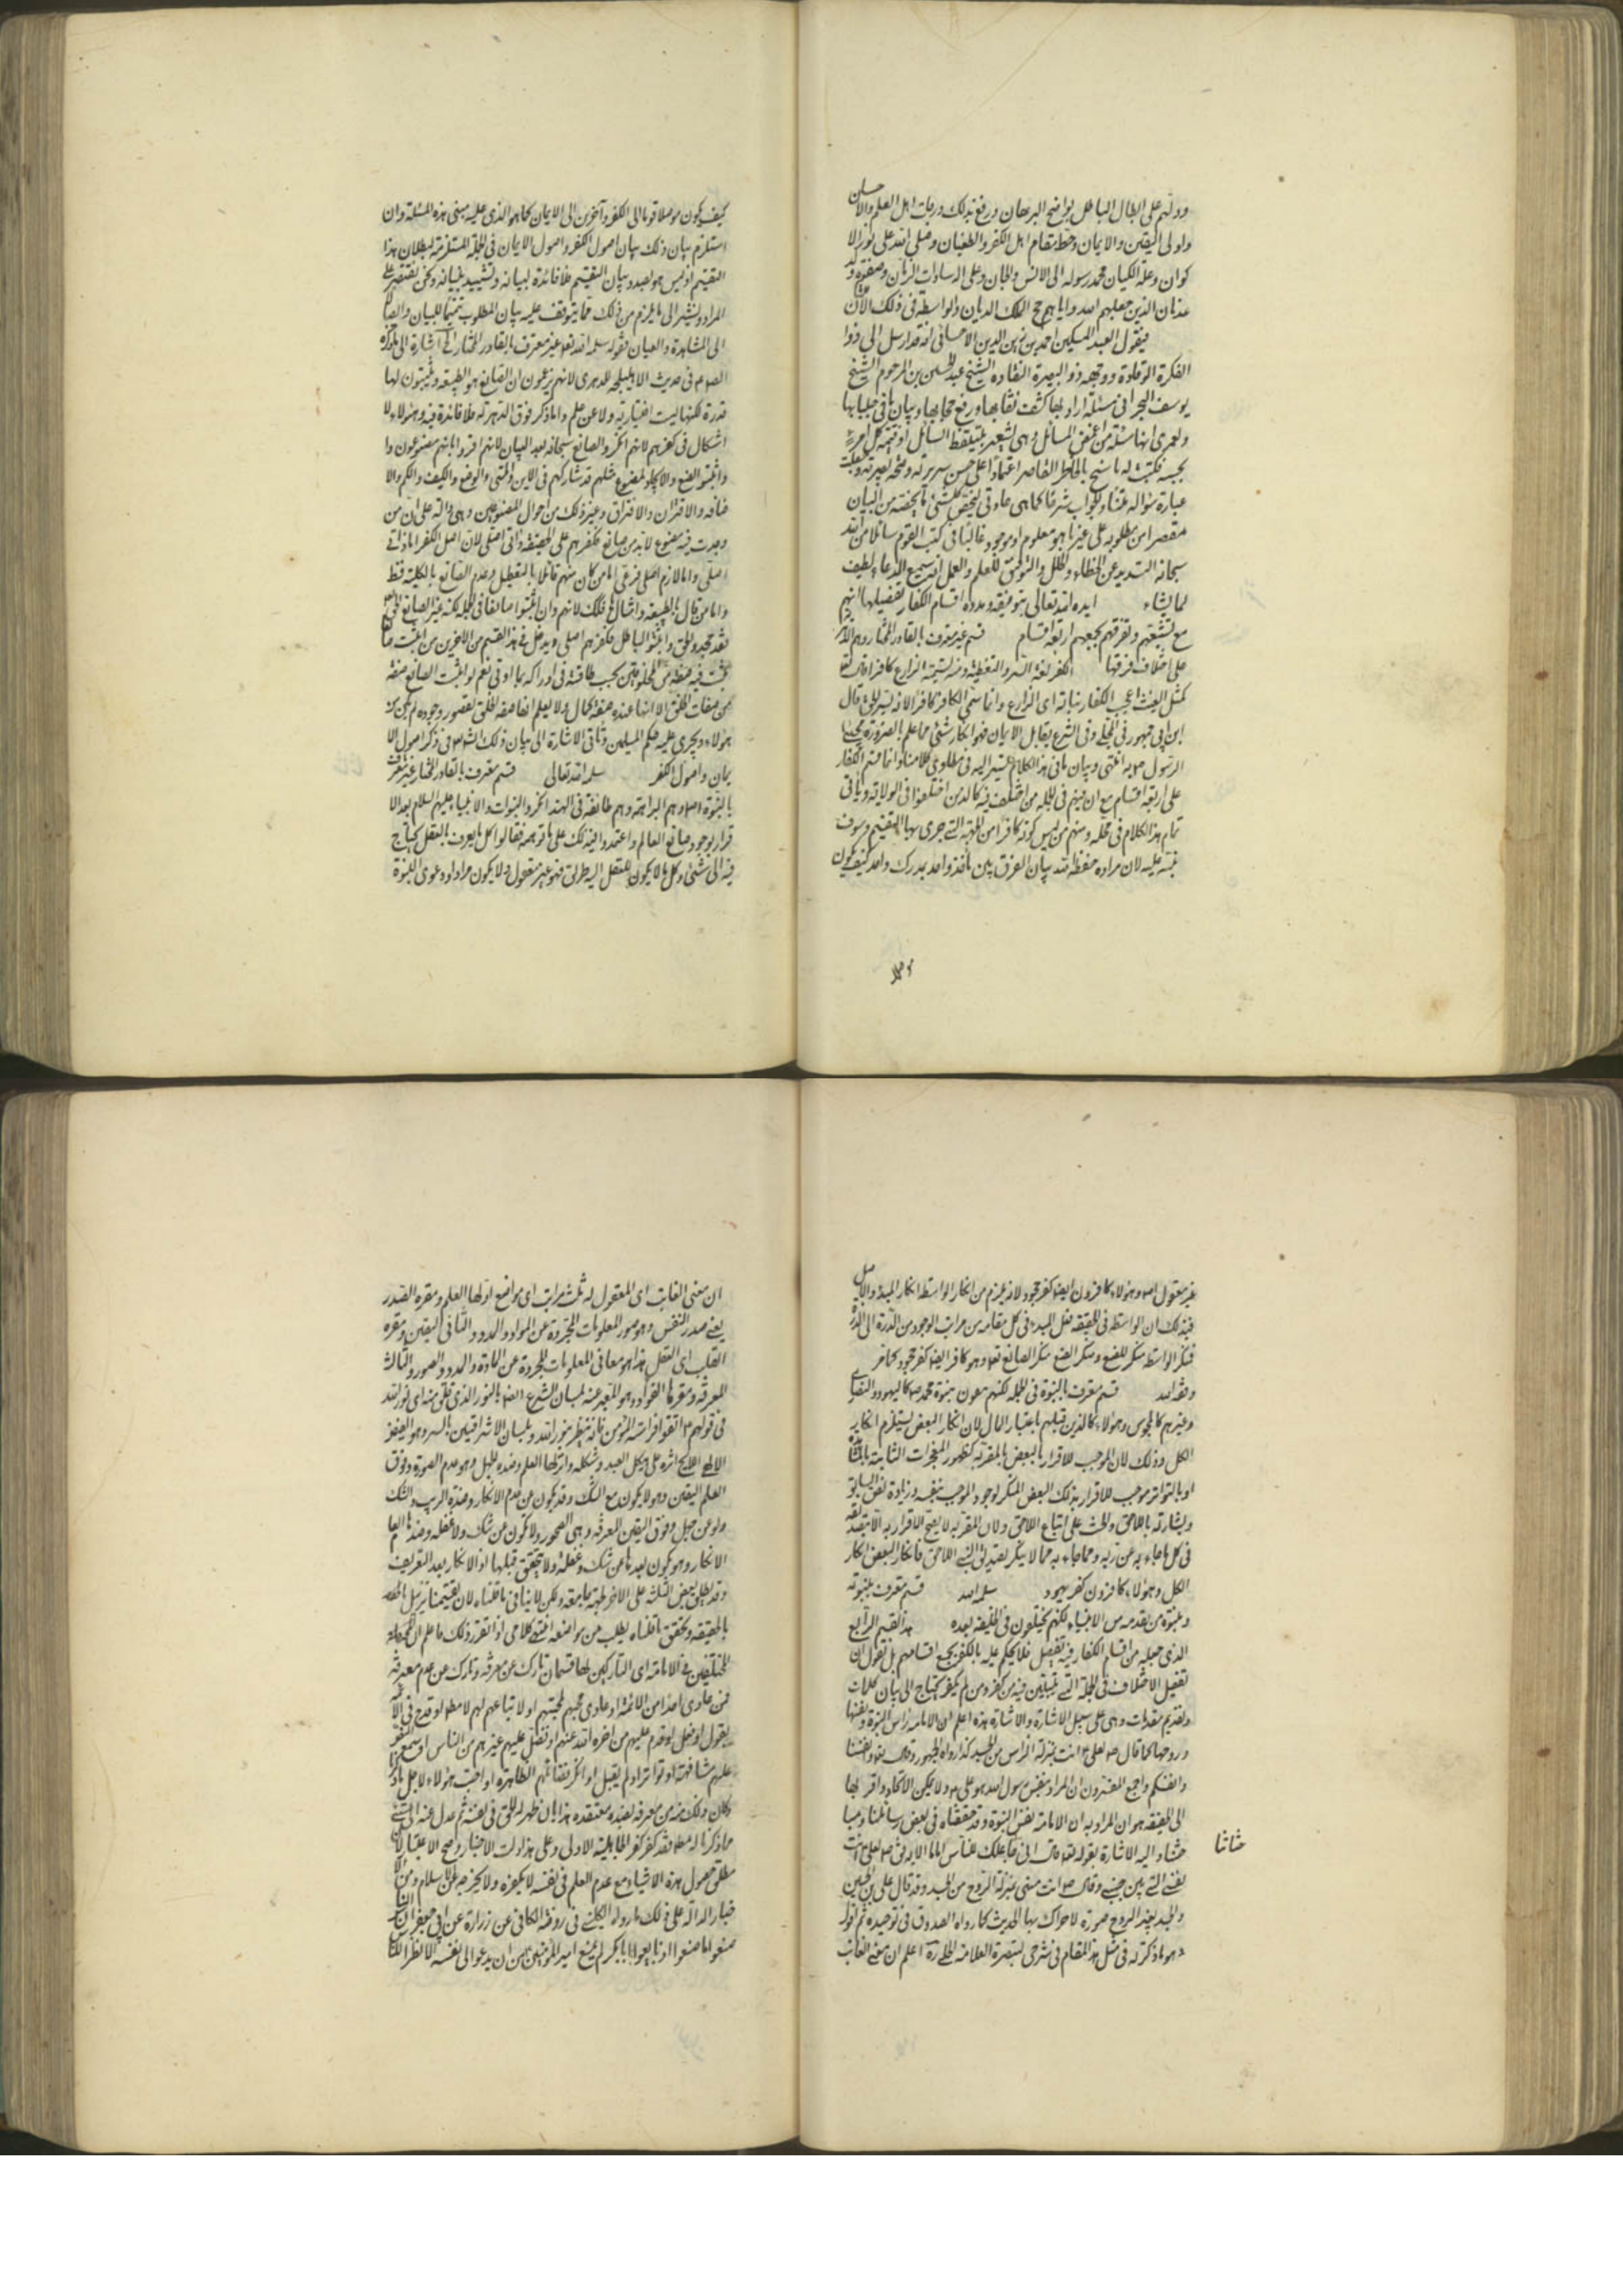 ودلهم على ابطال الباطل بواضح البرهان ورفع بذلك درجات اهل العلم والاحسان
واولى اليقين والايمان وحط مقام اهل الكفر والطغيان وصلى الله على نور الا
كوان وعلة الكيان محمد رسوله الى الانس والجان وعلى اله سادات الزمان وصفوة
عدنان الذين جعلهم الله واياهم حجج الملك الديان والواسطة فى ذلك الان
فيقول العبد المسكين احمد بن زين الدين الاحسائى انه قد ارسل الى ذو ا
الفكرة الوقادة ووجهه ذو البصيرة النقاده الشيخ عبد الحسين بن المرحوم الشيخ
يوسف البحرانى مسئلة اراد بها كشف نقابها ورفع حجابها وبيان ما فى جلبابها
ولعمرى انها مسئلة من اغمض المسائل
فكتبت له ما سنح بالخاطر القاصر اعتمادا على حسن سريرته وصحة بصيرته وجعلت
عبارة سؤاله متنا والجواب شرحا كما هى عادتى ليختص كل شئ بما يخصه من البيان
مقتصرا من مطلوبه على غير ما هو معلوم او موجود غالبا فى كتب القوم سائلا من الله
سبحانه التسديد عن الخطاء والخلل والتوفيق للعلم والعمل انه سميع الدعاء لطيف
لما يشاء ايده الله تعالى بتوفيقه ومدده اقسام الكفار تفصيلها انهم
مع تشتتهم وتفرقهم يجمعهم اربعة اقسام قسم غير معترف بالقادر المختار وهم الدهرية
على اختلاف فرقها الكفر لغة الستر والتغطية ومنه تسمية الزارع كافرا قال تعالى
كمثل الغيث اعجب الكفار نباته اى الزارع وانما سمى الكافر كافرا لانه يستر الحق قال
ابن ابى جمهور فى المجلى وفى الشرع يقابل الايمان فهو انكار شئ مما علم بالضرورة مجئ
الرسول به انتهى وبيان ما فى هذا الكلام
على اربعة اقسام مع ان فيهم فى الجملة من اختلف فيه كالذين اختلفوا فى الولاية ويأتى
تمام هذا الكلام فى محله ومنهم من ليس كونه كافرا من الجهة التى جرى بها التقسيم وسوف
ننبه عليه لان مراده حفظه الله بيان الفرق بين مأخذ واحد ومدرك واحد كيف يكون
موصلا
كيف يكون موصلا قوما الى الكفر وآخرين الى الايمان كما هو الذى عليه مبنى هذه المسئلة وان
استلزم بيان ذلك بيان اصول الكفر واصول الايمان فى الجملة المستلزمة لبطلان هذا
التقسيم اذ ليس هو بصدد بيان التقسيم فلا فائدة لبيانه وتشييد بنيانه ونحن نقتصر على
المراد ونشير الى ما يلزم من ذلك مما يتوقف عليه بيان المطلوب تتميما للبيان
الى المشاهدة والعيان فقوله سلمه الله تعالى غير معترف بالقادر المختار الخ اشارة الى ما ذكره
الصادق فى حديث الاهليلجة للدهرى لانهم يزعمون ان الصانع هو الطبيعة ويثبتون لها
قدرة لكنها ليست اختيارية ولا عن علم واما ذكر فرق الدهرية فلا فائدة فيه وهؤلاء لا
اشكال فى كفرهم لانهم انكروا الصانع سبحانه بعد البيان لانهم اقروا بانهم مصنوعون وا
واثبتوا الصنع والايجاد لمصنوع مثلهم قد شاركهم فى الاين والمتى والوضع والكيف والكم والا
ضافه والاقتران والافتراق وغير ذلك من احوال المصنوعين وهى دالة على ان من
وجدت فيه مصنوع لا بد من صانع فكفرهم على الحقيقة ذاتى اصلى لان اصل الكفر اما ذاتى
اصلى واما لازم اصلى فرعى اما من كان منهم قائلا بالتعطيل وعدم الصانع بالكلية فقط
واما من قال بالطبيعة وامثالها فكذلك لانهم وان اثبتوا صانعا فى الجملة لكنه غير الصانع الحق
فقد جحدوا الحق واثبتوا الباطل فكفرهم اصلى ويدخل فى هذا القسم من الاخرين من اثبت صانعا
تثبت فيه صفة من صفات المخلوقين بحسب طاقته فى ادراكه
من صفات الخلق الا انها عنده صفة كمال ولا يعلم انها صفة الخلق لقصور وجوده لم يكن من
هؤلاء ويجرى عليه حكم المسلمين وتأتى الاشارة الى بيان ذلك ان شاء الله فى ذكر اصول الا
يمان واصول الكفر سلمه الله تعالى قسم معترف بالقادر المختار غير معترف
بالنبوة وهم البراهمة وهم طائفة فى الهند انكروا النبوات والانبياء عليهم السلام بعد الا
قرار بوجود صانع العالم واعتمدوا فى ذلك على ما توهموه فقالوا كل ما يعرف بالعقل لا يحتاج
فيه الى شئ وكل ما لا يكون للعقل اليه طريق فهو غير معقول ولا يكون مرادا ودعوى النبوة
غير معقولة وهؤلاء كافرون ايضا كفر جحود لانه يلزم من انكار الواسطة انكار المبدء والاصل
فى ذلك ان الواسطة فى الحقيقة فعل المبدء فى كل مقام من مراتب الوجود من الذرة الى الدرة
فمنكر الواسطة منكر للصنع ومنكر الصنع منكر الصانع تعالى وهو كافر ايضا كفر جحود كما مر
وفقه الله قسم معترف بالنبوة فى الجملة لكنهم منكرون نبوة محمد ص كاليهود والنصارى
وغيرهم كالمجوس وهؤلاء كالذين قبلهم باعتبار المآل لان انكار البعض يستلزم انكار
الكل وذلك لان الموجب للاقرار بالبعض المقر به كظهور المعجزات الثابتة بالمشاهدة
او بالتواتر موجب للاقرار بذلك البعض المنكر لوجود الموجب بنفسه وزيادة نص السابق
وبشارته باللاحق والحث على اتباع اللاحق ولان المقر به لا يصح الاقرار به الا بتصديقه
فى كل ما جاء به عن ربه ومما جاء به مما لا ينكر تصديق النبى اللاحق فانكار البعض انكار
الكل وهؤلاء كافرون كفر يهود سلمه الله قسم معترف بنبوته
ونبوة من تقدمه من الانبياء لكنهم يختلفون فى الخليفة بعده هذا القسم الرابع
الذى جعله من اقسام الكفار فيه تفصيل فلا يحكم عليه بالكفر بجميع اقسامهم بل نقول ان
تفصيل الاختلاف فى الجملة التى يتبين فيه من كفر ومن لم يكفر يحتاج الى بيان كلمات
وتقديم مقدمات وهى على سبيل الاشارة والاشارة هذه اعلم ان الامامة رأس النبوة ونفسها
وروحها كما قال ص لعلى ع انت بمنزلة الرأس من الجسد كذا رواه الجمهور وقال تعالى وانفسنا
وانفسكم واجمع المفسرون ان المراد بنفس رسول الله هو على ولا يمكن الاتحاد واقربها
الى الحقيقة هو ان المراد به ان الامامة نفس النبوة وقد حققناه فى بعض رسائلنا ومبا
حثنا واليه الاشارة بقوله تعالى قال انى جاعلك للناس اماما الاية فى ص لعلى انت
نفسى التى بين جنبى وقال ص انت منى بمنزلة الروح من الجسد وقد قال على بن الحسين
والجسد بغير الروح صورة لا حراك بها الحديث كما رواه الصدوق فى توحيده ثم اقول
هو ما ذكرته فى مثل هذا المقام فى شرحى لتبصرة العلامة الحلى ره اعلم ان معنى الغائب
حثاثا
ان معنى الغائب اى المعقول له ثلث مراتب اى مواضع اولها العلم ومقره الصدر
يعنى صدر النفس وهو صور المعلومات المجردة عن المواد والمدد والثانى اليقين ومقره
القلب اى العقل هذا هو معانى المعلومات المجردة عن المادة والمدد والصور والثالث
المعرفة ومقرها الفؤاد وهو المعبر عنه بلسان الشرع ايضا بالنور الذى خلق منه اى نور الله
فى قولهم اتقوا فراسة المؤمن فانه ينظر بنور الله وبلسان الاشراقيين بالسر وهو الغيض
الالهى اللايح اثره على هيكل العبد وشكله وادناها العلم وضده الجهل وهو عدم الصورة وفوق
العلم اليقين وهو لا يكون مع الشك وقد يكون عن عدم الانكار وضده الريب والشك
ولو عن جهل وفوق اليقين المعرفة وهى الصحو ولا تكون عن شك ولا غفلة وضدها العام
الانكار وهو يكون بعدها عن شك وغفلة ولا يتحقق قبلها اذ الانكار بعد التعريف
وقد يطلق بعض الثلثة على الاخر لجهة جامعة ولكن لا ينافى ما قلناه لان تقسيمنا
بالحقيقة وتحقق ما قلناه يطلب من مواضعه انتهى كلامى اذا تقرر ذلك فاعلم ان
المختلفين فى الامامة اى التاركين لها قسمان تارك عن معرفة وتارك عن عدم معرفة
فمن عادى احدا من الائمة او عادى محبهم لمحبتهم او لاتباعهم لهم لا مطلقا او قدح فى الا
بقول او فعل او قدم عليهم من اخره الله عنهم او تفضل عليهم غيرهم من الناس او سمع
عليهم مشافهة او تواترا ولم يقبل او انكر فضائلهم الظاهرة او احب هؤلاء لاجل ما ذكرنا
وكان ذلك منه عن معرفة بضده معتقده هذا بان ظهر له الحق فى نفسه ثم عدل عنه
ما ذكرنا له فقد كفر كفر الجاهلية الاولى وعلى هذا دلت الاخبار وصح الاعتبار
مطلق حصول هذه الاشياء مع عدم العلم فى نفسه لا يكفره ولا يخرجه عن الاسلام ومن الا
خبار الدالة على ذلك ما رواه الكلينى فى روضة الكافى عن زرارة عن ابى جعفر ان الناس
صنعوا ما صنعوا اذ بايعوا ابا بكر لم يمنع امير المؤمنين من ان يدعو الى نفسه الا نظرا للناس